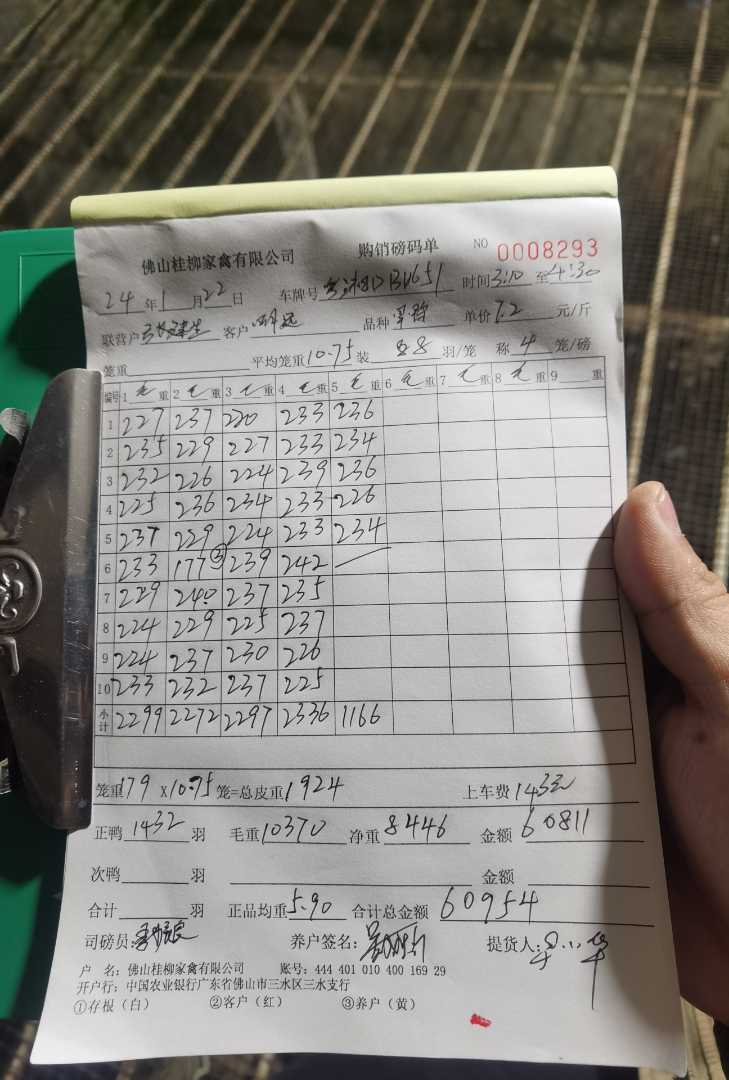 佛山桂柳家禽有限公司 购销磅码单 NO 0008293
24 年 1 月 22 日 车牌号 时间 3:10 至 4:30
联营户 客户 品种 单价 7.2 元/斤
笼重 平均笼重 10.75 装 8 羽/笼 称 4 笼/磅
编号 1 毛 重 2 毛 重 3 毛 重 4 毛 重 5 毛 重 6 毛 重 7 毛 重 8 毛 重 9 重
1 227 237 220 233 236
2 235 229 227 233 234
3 232 226 224 239 236
4 225 236 234 233 226
5 237 229 224 233 234
6 233 177 ③ 239 242
7 229 240 237 235
8 224 229 225 237
9 224 237 230 226
10 233 232 237 225
小计 2299 2272 2297 2336 1166
笼重 179 X 10.75 笼=总皮重 1924 上车费 143元
正鸭 1432 羽 毛重 10370 净重 8446 金额 60811
次鸭 羽 金额
合计 羽 正品均重 5.90 合计总金额 60954
司磅员: 养户签名: 提货人:
户 名: 佛山桂柳家禽有限公司 账号: 444 401 010 400 169 29
开户行: 中国农业银行广东省佛山市三水区三水支行
①存根（白） ②客户（红） ③养户（黄）